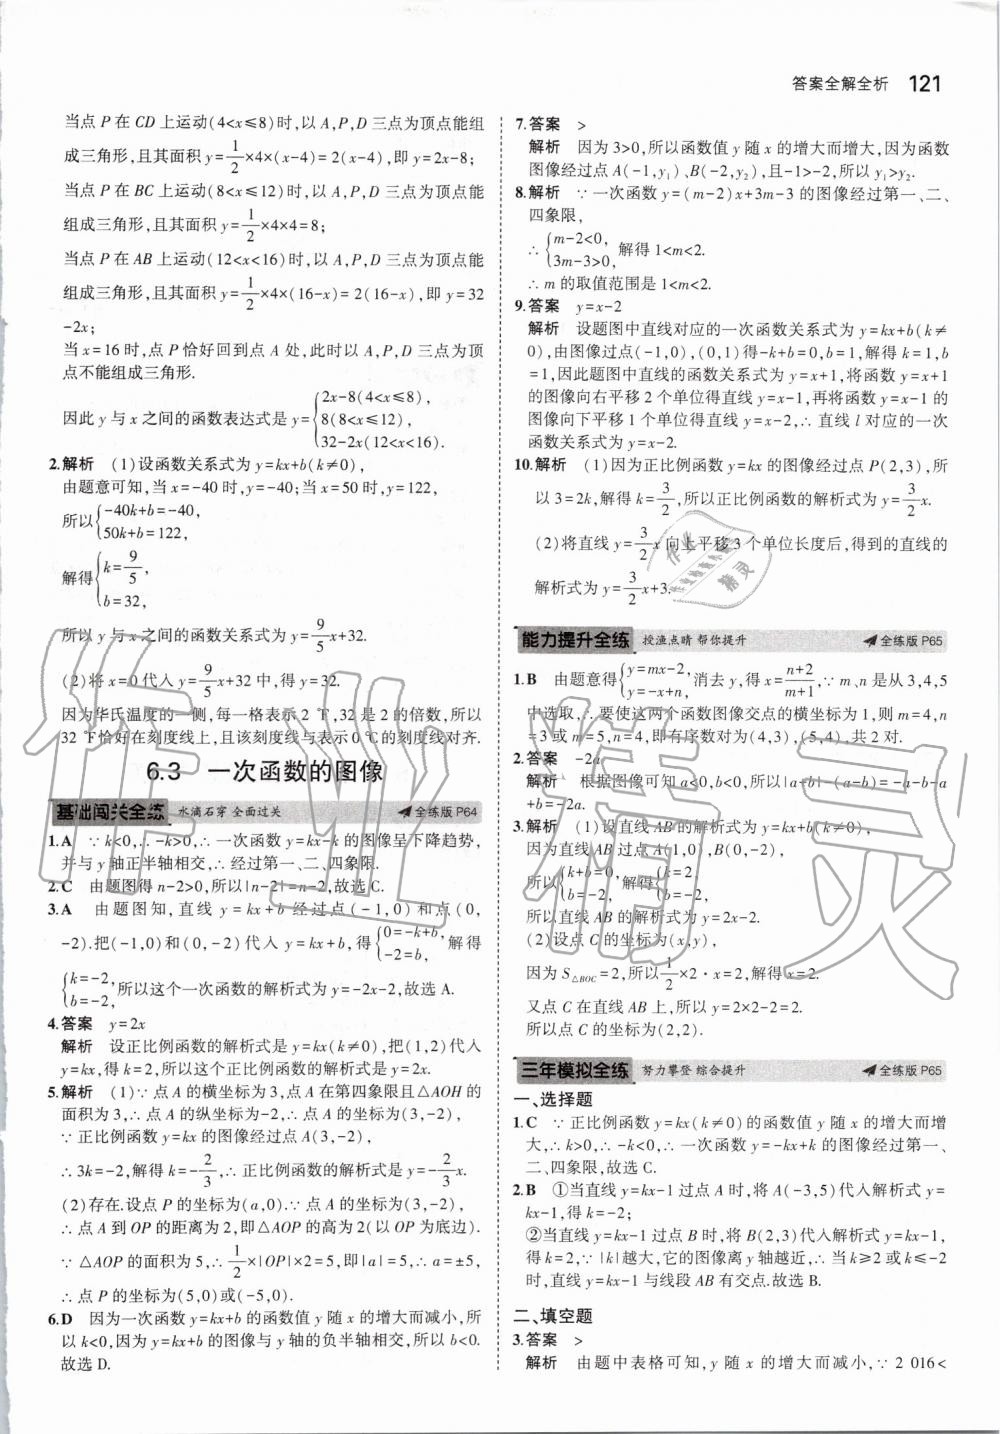 答案全解全析 121
当点 P 在 CD 上运动(4<x≤8)时,以 A,P,D 三点为顶点能组
成三角形,且其面积 y=1/2×4×(x-4)=2(x-4),即 y=2x-8;
当点 P 在 BC 上运动(8<x≤12)时,以 A,P,D 三点为顶点能
组成三角形,且其面积 y=1/2×4×4=8;
当点 P 在 AB 上运动(12<x<16)时,以 A,P,D 三点为顶点能
组成三角形,且其面积 y=1/2×4×(16-x)=2(16-x),即 y=32
-2x;
当 x=16 时,点 P 恰好回到点 A 处,此时以 A,P,D 三点为顶
点不能组成三角形.
因此 y 与 x 之间的函数表达式是 y={2x-8(4<x≤8),
8(8<x≤12),
32-2x(12<x<16).
2.解析 (1)设函数关系式为 y=kx+b(k≠0),
由题意可知,当 x=-40 时,y=-40;当 x=50 时,y=122,
所以{-40k+b=-40,
50k+b=122,
解得{k=9/5,
b=32,
所以 y 与 x 之间的函数关系式为 y=9/5x+32.
(2)将 x=0 代入 y=9/5x+32 中,得 y=32.
因为华氏温度的一侧,每一格表示 2 ℉,32 是 2 的倍数,所以
32 ℉恰好在刻度线上,且该刻度线与表示 0 ℃的刻度线对齐.
6.3 一次函数的图像
基础闯关全练 水滴石穿 全面过关 全练版 P64
1.A ∵ k<0,∴ -k>0,∴ 一次函数 y=kx-k 的图像呈下降趋势,
并与 y 轴正半轴相交,∴ 经过第一、二、四象限.
2.C 由题图得 n-2>0,所以|n-2|=n-2,故选 C.
3.A 由题图知,直线 y=kx+b 经过点(-1,0)和点(0,
-2).把(-1,0)和(0,-2)代入 y=kx+b,得{0=-k+b,
-2=b, 解得
{k=-2,
b=-2, 所以这个一次函数的解析式为 y=-2x-2,故选 A.
4.答案 y=2x
解析 设正比例函数的解析式是 y=kx(k≠0),把(1,2)代入
y=kx,得 k=2,所以这个正比例函数的解析式是 y=2x.
5.解析 (1)∵ 点 A 的横坐标为 3,点 A 在第四象限且△AOH 的
面积为 3,∴ 点 A 的纵坐标为-2,∴ 点 A 的坐标为(3,-2),
∵ 正比例函数 y=kx 的图像经过点 A(3,-2),
∴ 3k=-2,解得 k=-2/3,∴ 正比例函数的解析式是 y=-2/3x.
(2)存在.设点 P 的坐标为(a,0).∵ 点 A 的坐标为(3,-2),
∴ 点 A 到 OP 的距离为 2,即△AOP 的高为 2(以 OP 为底边).
∵ △AOP 的面积为 5,∴ 1/2×|OP|×2=5,即|a|=5,∴ a=±5,
∴ 点 P 的坐标为(5,0)或(-5,0).
6.D 因为一次函数 y=kx+b 的函数值 y 随 x 的增大而减小,所
以 k<0,因为 y=kx+b 的图像与 y 轴的负半轴相交,所以 b<0.
故选 D.
7.答案 >
解析 因为 3>0,所以函数值 y 随 x 的增大而增大,因为函数
图像经过点 A(-1,y₁)、B(-2,y₂),且-1>-2,所以 y₁>y₂.
8.解析 ∵ 一次函数 y=(m-2)x+3m-3 的图像经过第一、二、
四象限,
∴ {m-2<0,
3m-3>0, 解得 1<m<2.
∴ m 的取值范围是 1<m<2.
9.答案 y=x-2
解析 设题图中直线对应的一次函数关系式为 y=kx+b(k≠
0),由图像过点(-1,0),(0,1)得-k+b=0,b=1,解得 k=1,b
=1,因此题图中直线的函数关系式为 y=x+1,将函数 y=x+1
的图像向右平移 2 个单位得直线 y=x-1,再将函数 y=x-1 的
图像向下平移 1 个单位得直线 y=x-2,∴ 直线 l 对应的一次
函数关系式为 y=x-2.
10.解析 (1)因为正比例函数 y=kx 的图像经过点 P(2,3),所
以 3=2k,解得 k=3/2,所以正比例函数的解析式为 y=3/2x.
(2)将直线 y=3/2x 向上平移 3 个单位长度后,得到的直线的
解析式为 y=3/2x+3.
能力提升全练 授渔点睛 帮你提升 全练版 P65
1.B 由题意得{y=mx-2,
y=-x+n, 消去 y,得 x=(n+2)/(m+1),∵ m、n 是从 3,4,5
中选取,∴ 要使这两个函数图像交点的横坐标为 1,则 m=4,n
=3 或 m=5,n=4,即有序数对为(4,3),(5,4),共 2 对.
2.答案 -2a
解析 根据图像可知 a<0,b<0,所以|a+b|-(a-b)=-a-b-a
+b=-2a.
3.解析 (1)设直线 AB 的解析式为 y=kx+b(k≠0),
因为直线 AB 过点 A(1,0),B(0,-2),
所以{k+b=0,
b=-2, 解得{k=2,
b=-2,
所以直线 AB 的解析式为 y=2x-2.
(2)设点 C 的坐标为(x,y),
因为 S△BOC=2,所以1/2×2·x=2,解得 x=2.
又点 C 在直线 AB 上,所以 y=2×2-2=2.
所以点 C 的坐标为(2,2).
三年模拟全练 努力攀登 综合提升 全练版 P65
一、选择题
1.C ∵ 正比例函数 y=kx(k≠0)的函数值 y 随 x 的增大而增
大,∴ k>0,∴ -k<0,∴ 一次函数 y=-kx+k 的图像经过第一、
二、四象限,故选 C.
2.B ①当直线 y=kx-1 过点 A 时,将 A(-3,5)代入解析式 y=
kx-1,得 k=-2;
②当直线 y=kx-1 过点 B 时,将 B(2,3)代入解析式 y=kx-1,
得 k=2,∵ |k|越大,它的图像离 y 轴越近,∴ 当 k≥2 或 k≤-2
时,直线 y=kx-1 与线段 AB 有交点.故选 B.
二、填空题
3.答案 >
解析 由题中表格可知,y 随 x 的增大而减小,∵ 2 016<
作业精灵